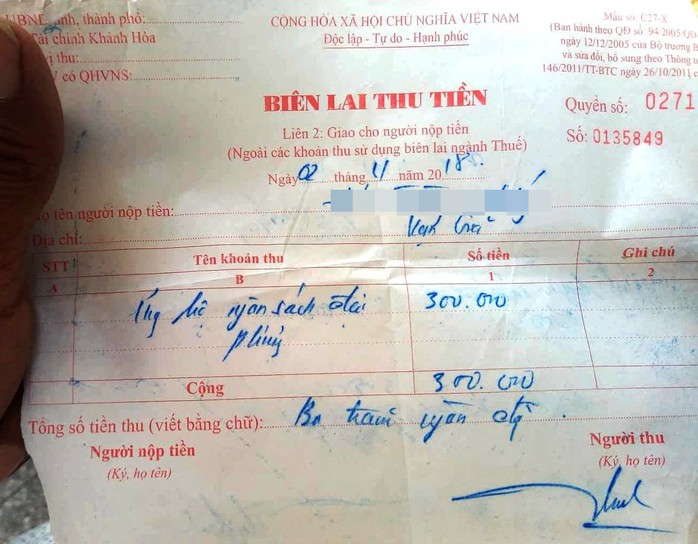 UBND tỉnh, thành phố:
CỘNG HÒA XÃ HỘI CHỦ NGHĨA VIỆT NAM
Mẫu số: C27-X
Tài chính Khánh Hòa
Độc lập - Tự do - Hạnh phúc
(Ban hành theo QĐ số: 94-2005/QĐ-
vị thu:
ngày 12/12/2005 của Bộ trưởng B
có QHVNS:
và sửa đổi, bổ sung theo Thông t
146/2011/TT-BTC ngày 26/10/2011 c
BIÊN LAI THU TIỀN
Quyển số: 0271
Liên 2: Giao cho người nộp tiền
Số: 0135849
(Ngoài các khoản thu sử dụng biên lai ngành Thuế)
Ngày 02 tháng 4 năm 2018
tên người nộp tiền:
Địa chỉ:
STT Tên khoản thu Số tiền Ghi chú
A B 1 2
Ủng hộ ngân sách địa 300.000
phương
Cộng 300.000
Tổng số tiền thu (viết bằng chữ): Ba trăm ngàn đồng
Người nộp tiền Người thu
(Ký, họ tên) (Ký, họ tên)